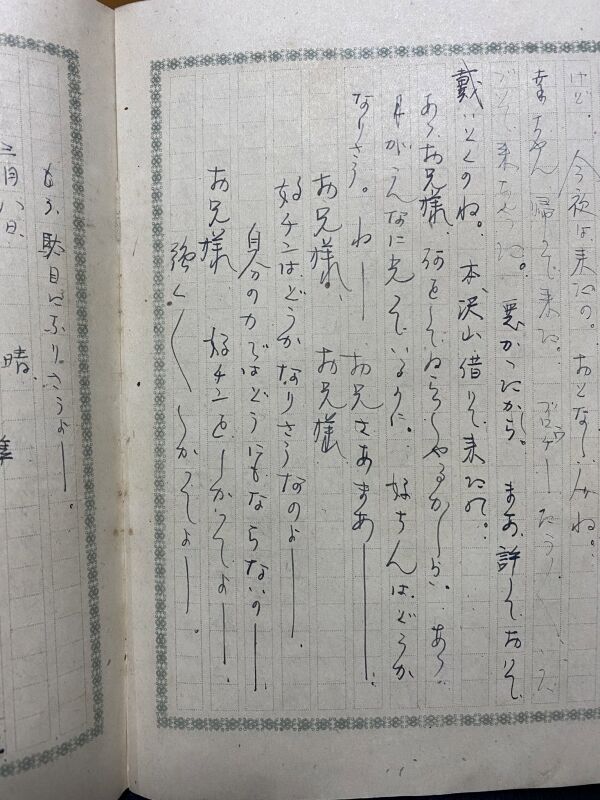 けど。今夜は来たの。おとなしみね。
幸ちゃん帰って来た。ブローチー
来ちゃったね。悪かったから。まあ、許しておいて
戴いとくのね。本、沢山借りて来たの。
あゝお兄様、何をしてゐらっしやるかしら。あゝ
月がこんなに光っているのに。好ちんはどうか
なりさう。ねー お兄さあまあー。
お兄様、お兄様
好チンはどうかなりさうなのよー。
自分の力ではどうにもならないのー。
お兄様 好チンをしかってよー。
強く〱しかってよー。
もう、駄目になりさうよー。
二月八日、晴、